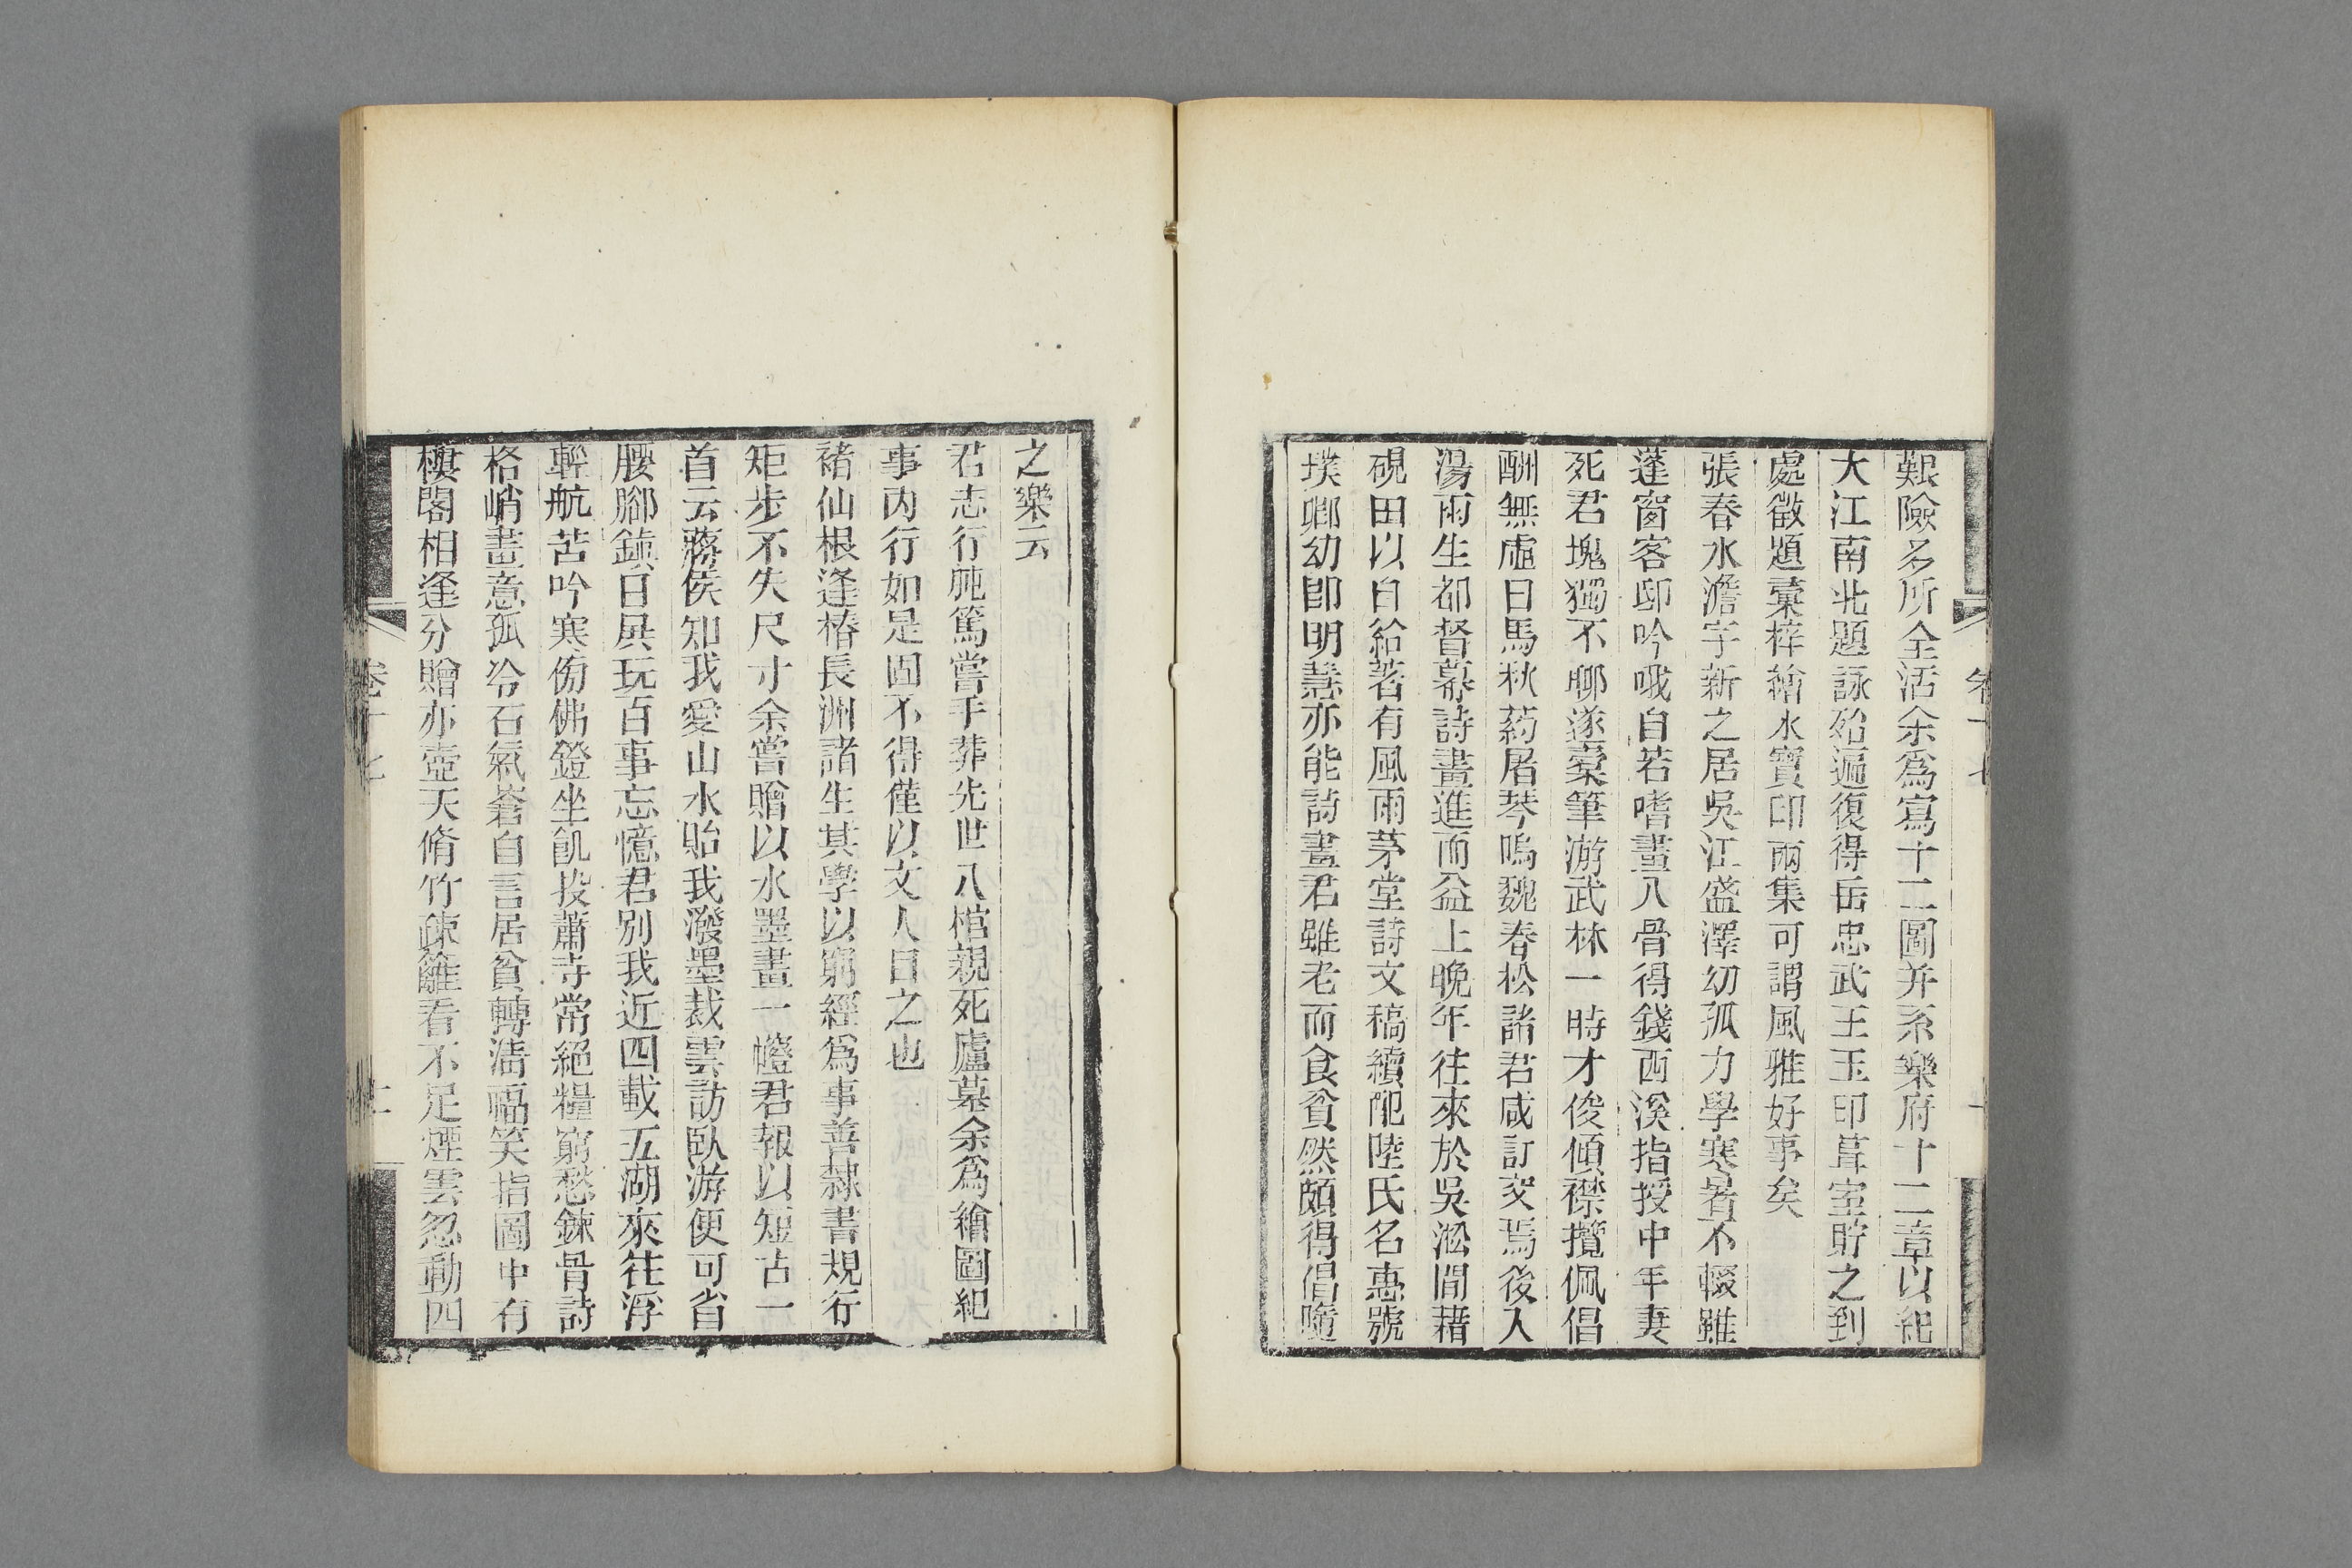 艱險多所全活余爲寫十二圖并系樂府十二章以紀
大江南北題詠殆遍復得岳忠武王玉印葺室貯之到
處徵題彙梓繪水寶印兩集可謂風雅好事矣
張春水澹字新之居吳江盛澤幼孤力學寒暑不輟雖
蓬窗客邸吟哦自若嗜畫入骨得錢西溪指授中年妻
死君塊獨不聊遂橐筆游武林一時才俊傾襟攬佩倡
酬無虛日馬秋葯屠琴塢魏春松諸君咸訂交焉後入
湯雨生都督幕詩畫進而益上晚年往來於吳淞間藉
硯田以自給著有風雨茅堂詩文稿續配陸氏名惠號
璞卿幼卽明慧亦能詩畫君雖老而食貧然頗得倡隨
卷十七
之樂云
君志行肫篤嘗手葬先世八棺親死廬墓余爲繪圖紀
事內行如是固不得僅以文人目之也
褚仙根逢椿長洲諸生其學以窮經爲事善隸書規行
矩步不失尺寸余嘗贈以水墨畫一幢君報以短古一
首云蔣侯知我愛山水貽我潑墨裁雲訪臥游便可省
腰腳鎮日展玩百事忘憶君別我近四載五湖來往浮
輕航苦吟寒傍佛鐙坐飢投蕭寺常絕糧窮愁鍊骨詩
格峭畫意孤冷石氣蒼自言居貧轉淸福笑指圖中有
樓閣相逢分贈亦壺天脩竹疎籬看不足煙雲忽動四
卷十七